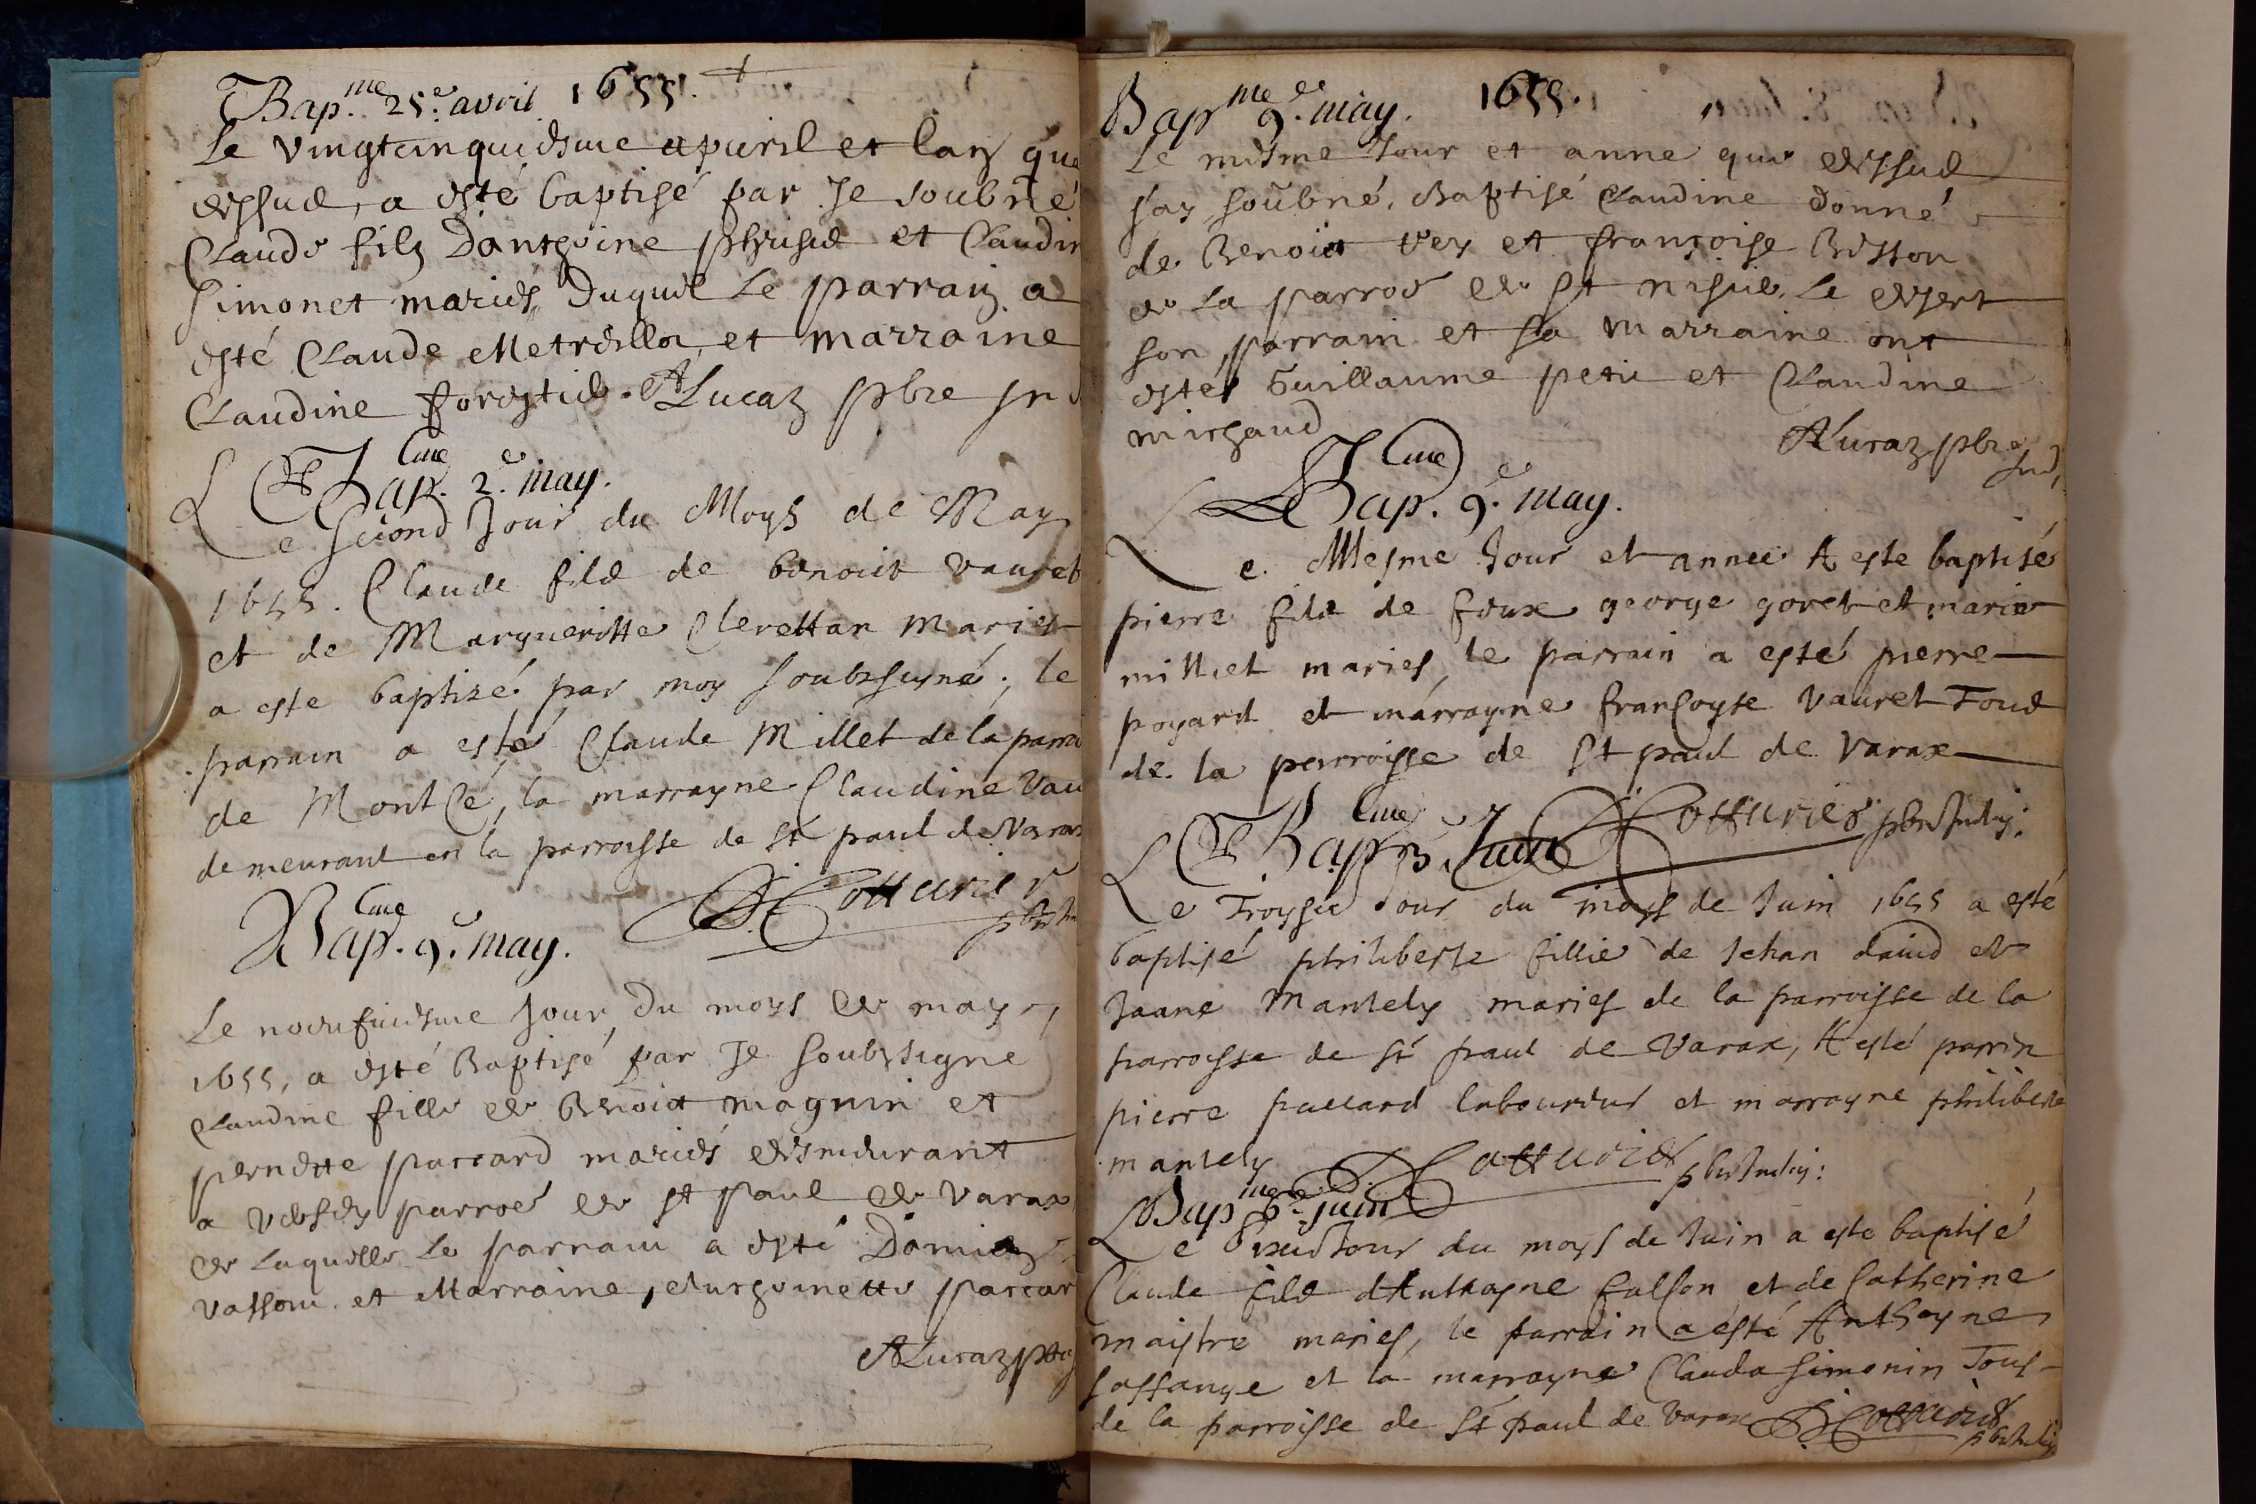 Bap.me 25.e avril. 1655.
Le vingtcinquiesme apuril et lan que
dessus, a esté baptisé par Je soubné
Claude filz Danthoine et Claudin
Simonet mariés, duquel Le parrain a
esté Claude Metrillot et marraine
Claudine forestier. A Lucaz pbre Ind
Bap.me 2.e may.
Le second Jour du Moys de May
1655. Claude fils de benoict vauret
et de Margueritte Clerettan Maries
a este baptizé par moy soubsigné; le
parrain a esté Claude Millet de la parroi
de Montcé, la marrayne Claudine Vau
demeurant en la parroisse de St paul de Varax
Cotturier pbr In
Bap.me 9.e may.
Le neufuiesme Jour du moys de may
1655, a esté Baptisé par Je soubzsigne
Claudine fille de Benoict magnin et
pernette paccard mariés demeurant
a parroe de St Paul de Varax
de Laquelle Le parrain a esté
et Marraine, paccar
A Lucaz pbr
Bapme 9.e may. 1655.
Le mesme Jour et anne que dessus
Jay soubné, Baptisé Claudine donné
de Benoict vey et françoise Buson
de La parroe de St nisier Le desert
son parrain et sa marraine ont
estés Guillaume petit et Claudine
michaud
A Lucaz pbre Ind,
Bap.me 9.e may.
Le Mesme Jour et annee A este baptisé
pierre fils de feux george goret et marie
milliet maries, le parrain a esté pierre
poyard et marrayne françoyse Vauret Tous
de la parroisse de St paul de Varax
Cotturier pbr Indig:
Bap.me 3.e Juin
Le Troysie Jour du moys de Juin 1655 a esté
baptisé philiberte fillie de Jehan dauid et
Jeane Mantely maries de la parroisse de la
parroisse de St paul de Varax, A esté parrin
pierre paccard laboureur et marrayne philiberte
mantely
Cotturier pbr Indig:
Bapme 6.e Juin
Le Sixies Jour du moys de Juin a este baptisé
Claude fils dAnthoyne falson et de Catherine
maistre maries, le parrain a ésté Anthoyne
et la marrayne Clauda Simonin Tous
de la parroisse de St paul de Varax Cotturier pbr Indig